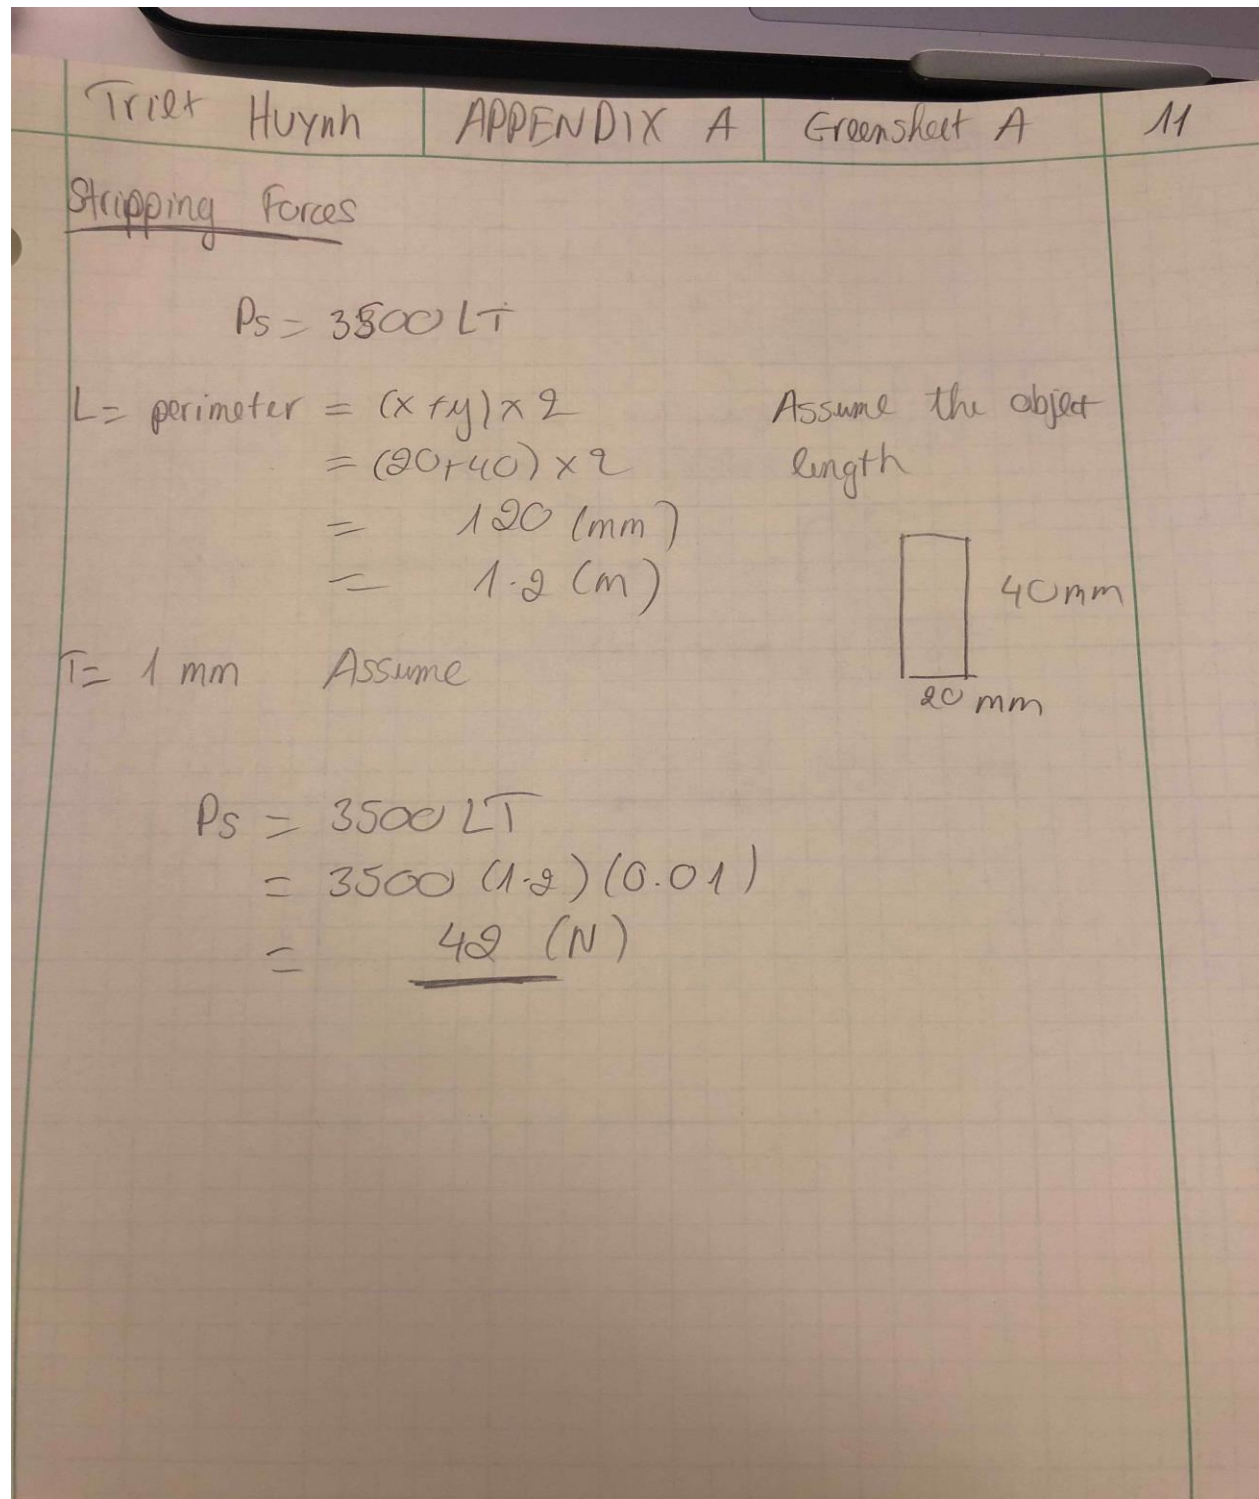 Triet Huynh APPENDIX A Greensheet A 11
Stripping Forces
Ps = 3500 LT
L= perimeter = (x+y) x 2 Assume the object
= (20+40) x 2 length
= 120 (mm)
= 1.2 (m) 40mm
T= 1 mm Assume
20 mm
Ps = 3500 LT
= 3500 (1.2) (0.01)
= 42 (N)